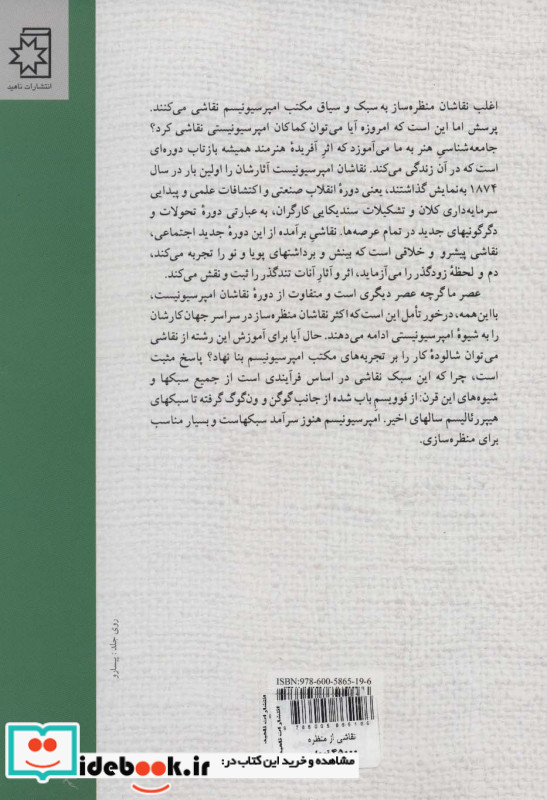 انتشارات ناهید
اغلب نقاشان منظره‌ساز به سبک و سیاق مکتب امپرسیونیسم نقاشی می‌کنند.
پرسش اما این است که امروزه آیا می‌توان کماکان امپرسیونیستی نقاشی کرد؟
جامعه‌شناسیِ هنر به ما می‌آموزد که اثرِ آفریدهٔ هنرمند همیشه بازتاب دوره‌ای
است که در آن زندگی می‌کند. نقاشان امپرسیونیست آثارشان را اولین بار در سال
۱۸۷۴ به‌نمایش گذاشتند، یعنی دورهٔ انقلاب صنعتی و اکتشافات علمی و پیدایی
سرمایه‌داری کلان و تشکیلات سندیکایی کارگران، به عبارتی دورهٔ تحولات و
دگرگونیهای جدید در تمام عرصه‌ها. نقاشیِ برآمده از این دورهٔ جدید اجتماعی،
نقاشی پیشرو و خلاقی است که بینش و برداشتهای پویا و نو را تجربه می‌کند،
دم و لحظهٔ زودگذر را می‌آزماید، اثر و آثارِ آنات تندگذر را ثبت و نقش می‌کند.
عصر ما گرچه عصر دیگری است و متفاوت از دورهٔ نقاشان امپرسیونیست،
با این‌همه، درخور تأمل این است که اکثر نقاشان منظره‌ساز در سراسر جهان کارشان
را به شیوهٔ امپرسیونیستی ادامه می‌دهند. حال آیا برای آموزش این رشته از نقاشی
می‌توان شالودهٔ کار را بر تجربه‌های مکتب امپرسیونیسم بنا نهاد؟ پاسخ مثبت
است، چرا که این سبک نقاشی در اساس فرآیندی است از جمیع سبکها و
شیوه‌های این قرن: از فوویسمِ باب شده از جانب گوگن و ون‌گوگ گرفته تا سبکهای
هیپررئالیسم سالهای اخیر. امپرسیونیسم هنوز سرآمد سبکهاست و بسیار مناسب
برای منظره‌سازی.
روی جلد: پیسارو
ISBN:978-600-5865-19-6
انتشارات ناهید
نقاشی از منظره
۴۵۰۰۰ تومان
مشاهده و خرید این کتاب در:
idebook.ir